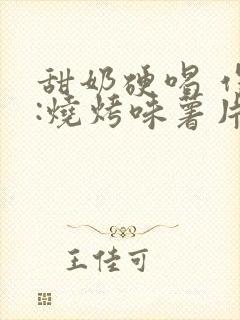 甜奶硬唱
:燒烤味薯片
王佳可